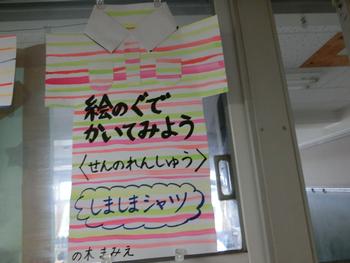 絵のぐで
かいてみよう
〈せんのれんしゅう〉
しましまシャツ
の木きみえ